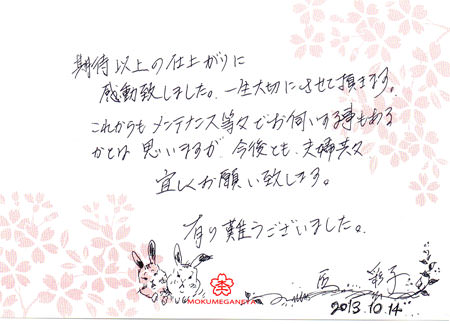 期待以上の仕上がりに
感動致しました。一生大切にさせて頂きます。
これからもメンテナンス等々でお伺いする事もある
かとは思いますが、今後とも、夫婦共々
宜しくお願い致します。
有り難うございました。
MOKUMEGANEYA
2013.10.14